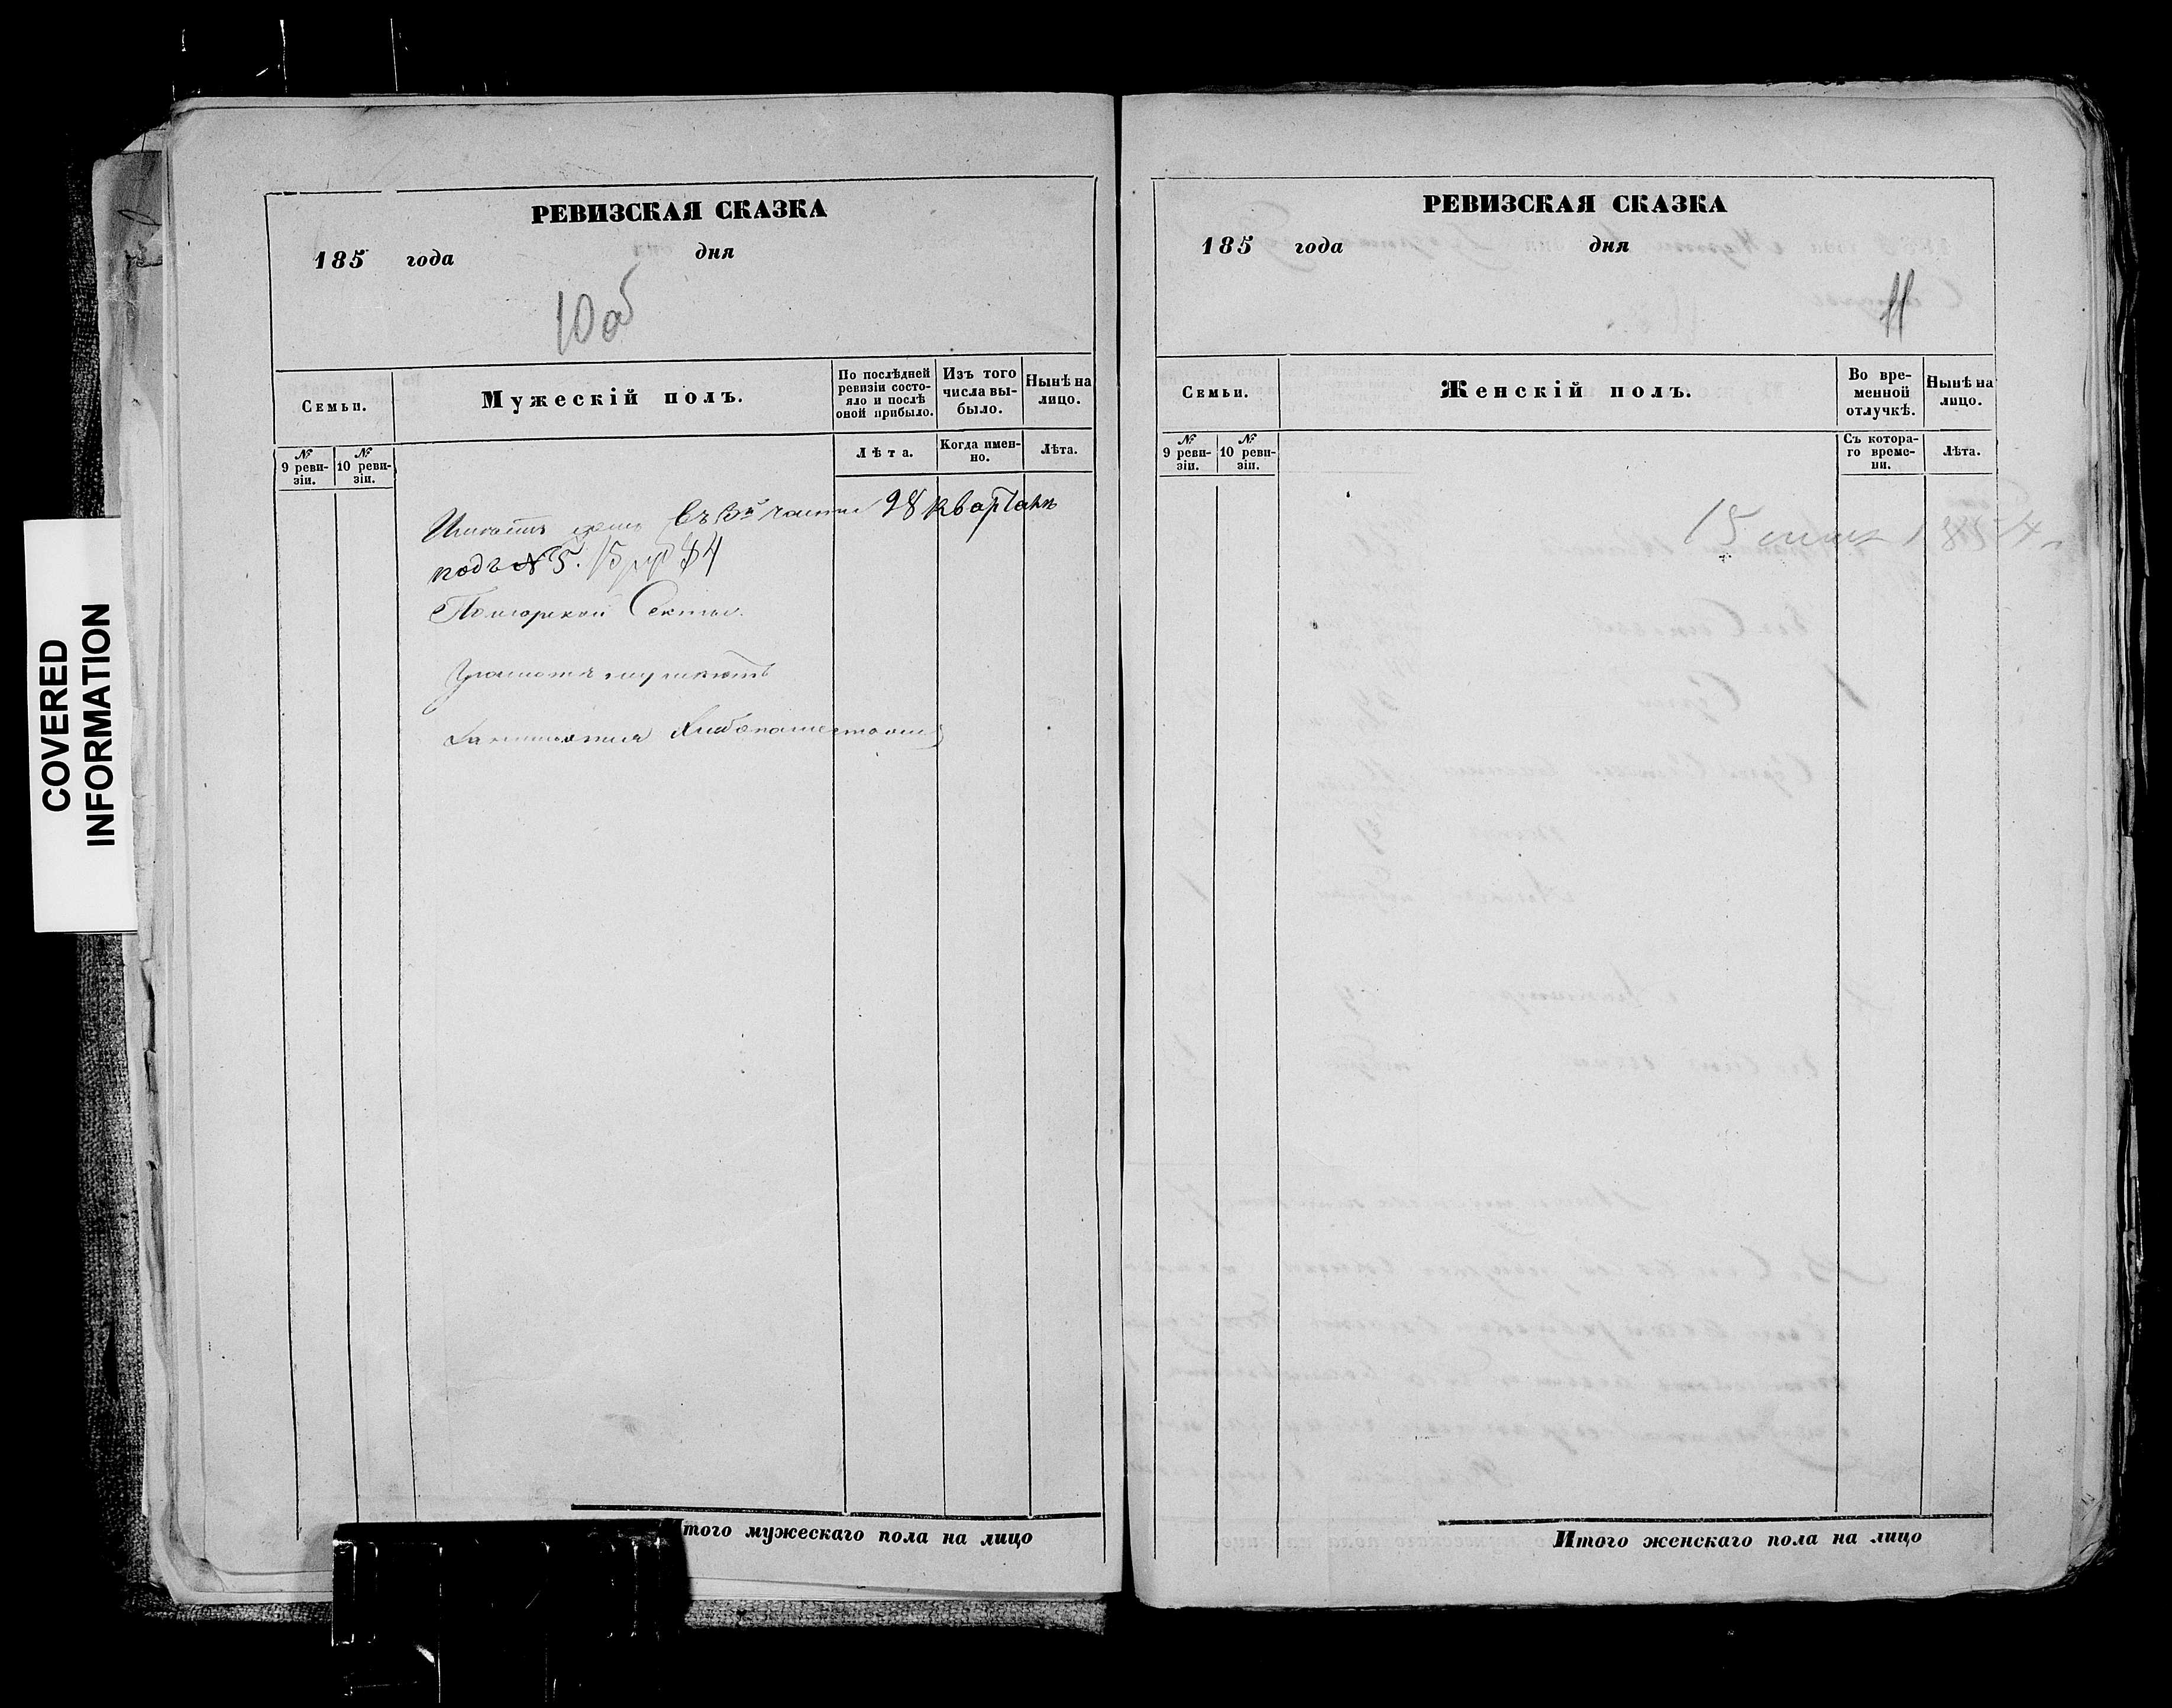 COVERED
INFORMATION
РЕВИЗСКАЯ СКАЗКА
185 года дня
10 об
Семьи.
Мужескій полъ.
По послѣдней
ревизіи состо-
яло и послѣ
оной прибыло.
Изъ того
числа вы-
было.
Нынѣ на
лицо.
№
9 реви-
зіи.
№
10 реви-
зіи.
Лѣта.
Когда имен-
но.
Лѣта.
Имѣетъ домъ въ 3й части 98 кварталѣ
подъ № 5.
Поморской Секты.
Грамотѣ неумѣютъ
Занимаются Хлебопашествомъ
того мужескаго пола на лицо
РЕВИЗСКАЯ СКАЗКА
185 года дня
11
Семьи.
Женскій полъ.
Во вре-
менной
отлучкѣ.
Нынѣ на
лицо.
№
9 реви-
зіи.
№
10 реви-
зіи.
Съ котора-
го време-
ни.
Лѣта.
15
Итого женскаго пола на лицо